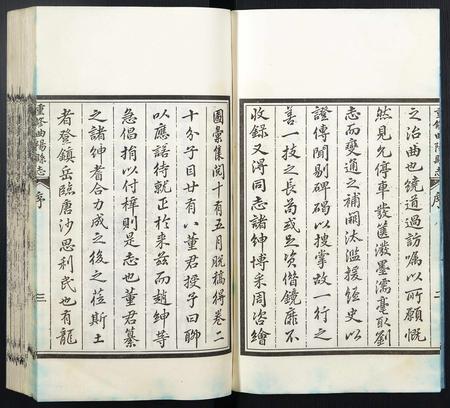 重修曲陽縣志 序 二
之治曲也繞道過訪囑以所願慨
然見允停車發篋潑墨濡毫取劉
志而變通之補闕汰濫援經史以
證傳聞剔碑碣以搜掌故一行之
善一技之長苟或足資借鏡靡不
收錄又得同志諸紳博采周咨繪
圖彙集閱十有五月脫稿得卷二
十分子目廿有八董君授予曰聊
以應諾待就正於來茲而趙紳等
急倡捐以付梓則是志也董君纂
之諸紳耆合力成之後之莅斯土
者登鎮岳臨唐沙思利民也有龍
重修曲陽縣志 序 三